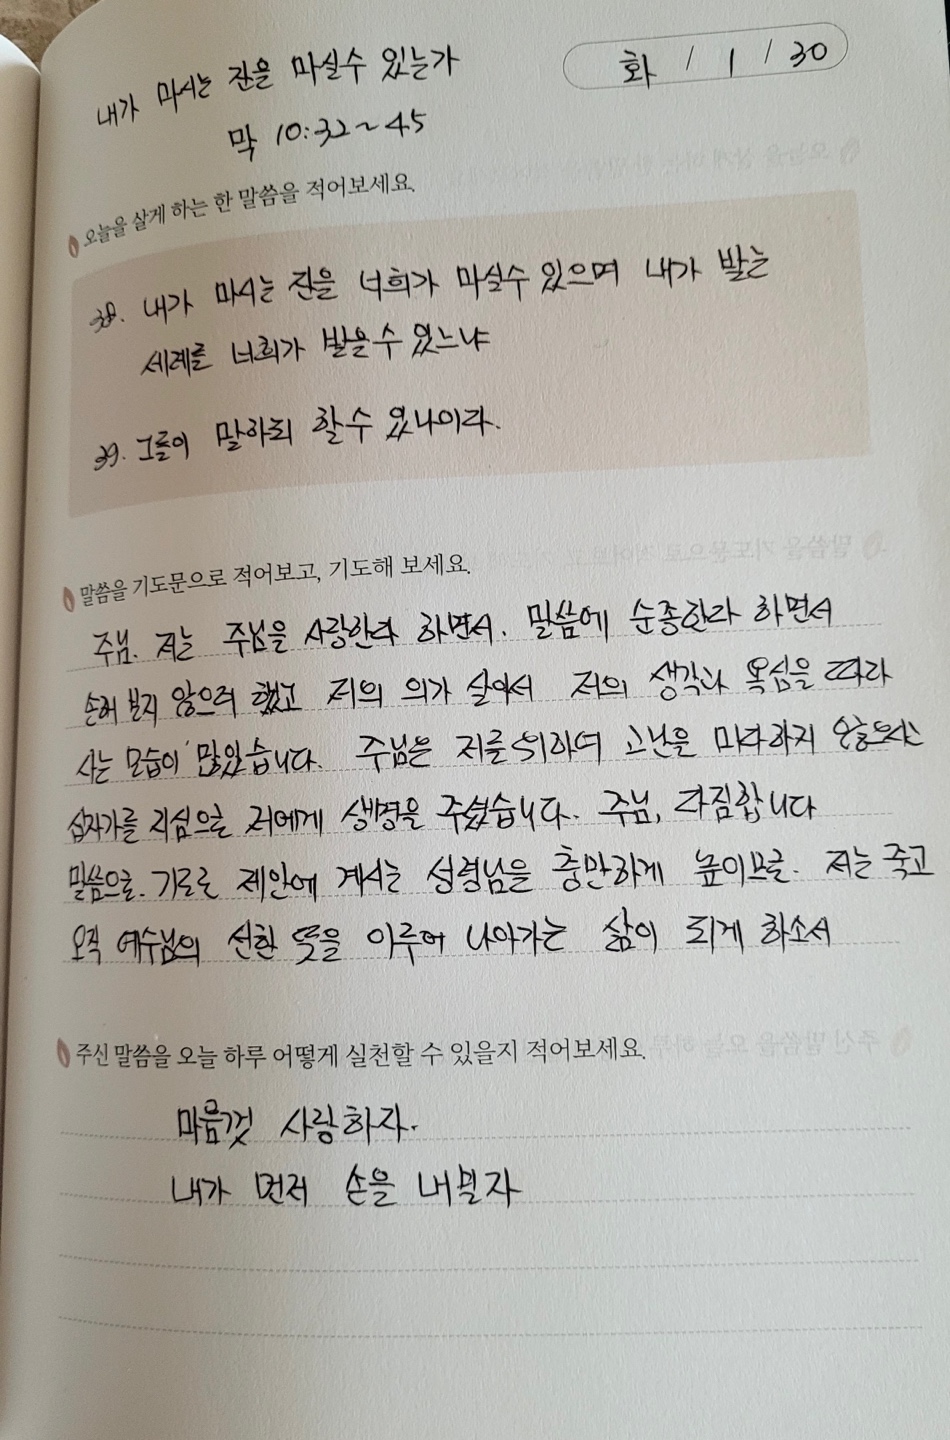 화 / 1 / 30
내가 마시는 잔을 마실수 있는가
막 10:32~45
오늘을 살게 하는 한 말씀을 적어보세요.
38. 내가 마시는 잔을 너희가 마실수 있으며 내가 받는
세례를 너희가 받을수 있느냐
39. 그들이 말하되 할수 있나이다.
말씀을 기도문으로 적어보고, 기도해 보세요.
주님. 저는 주님을 사랑한다 하면서. 말씀에 순종한다 하면서
손해 보지 않으려 했고 저의 의가 살아서 저의 생각과 욕심을 따라
사는 모습이 많았습니다. 주님은 저를 위하여 고난을 마다하지 않으시는
십자가를 지심으로 저에게 생명을 주셨습니다. 주님, 다짐합니다
말씀으로. 기도로 제안에 계시는 성령님을 충만하게 높이므로. 저는 죽고
오직 예수님의 선한 뜻을 이루어 나아가는 삶이 되게 하소서
주신 말씀을 오늘 하루 어떻게 실천할 수 있을지 적어보세요.
마음껏 사랑하자.
내가 먼저 손을 내밀자